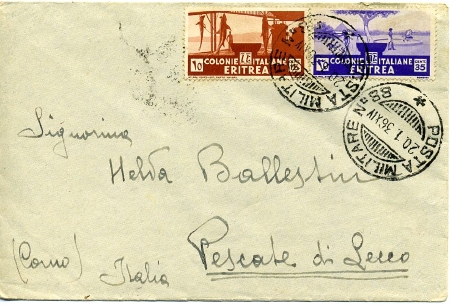 COLONIE ITALIANE
10
ERITREA
COLONIE ITALIANE
15
ERITREA
35
POSTA MILITARE Nº 88
20.1.36 XIV
Signorina
Helda Ballestin
Pescate di Lecco
(Como) Italia